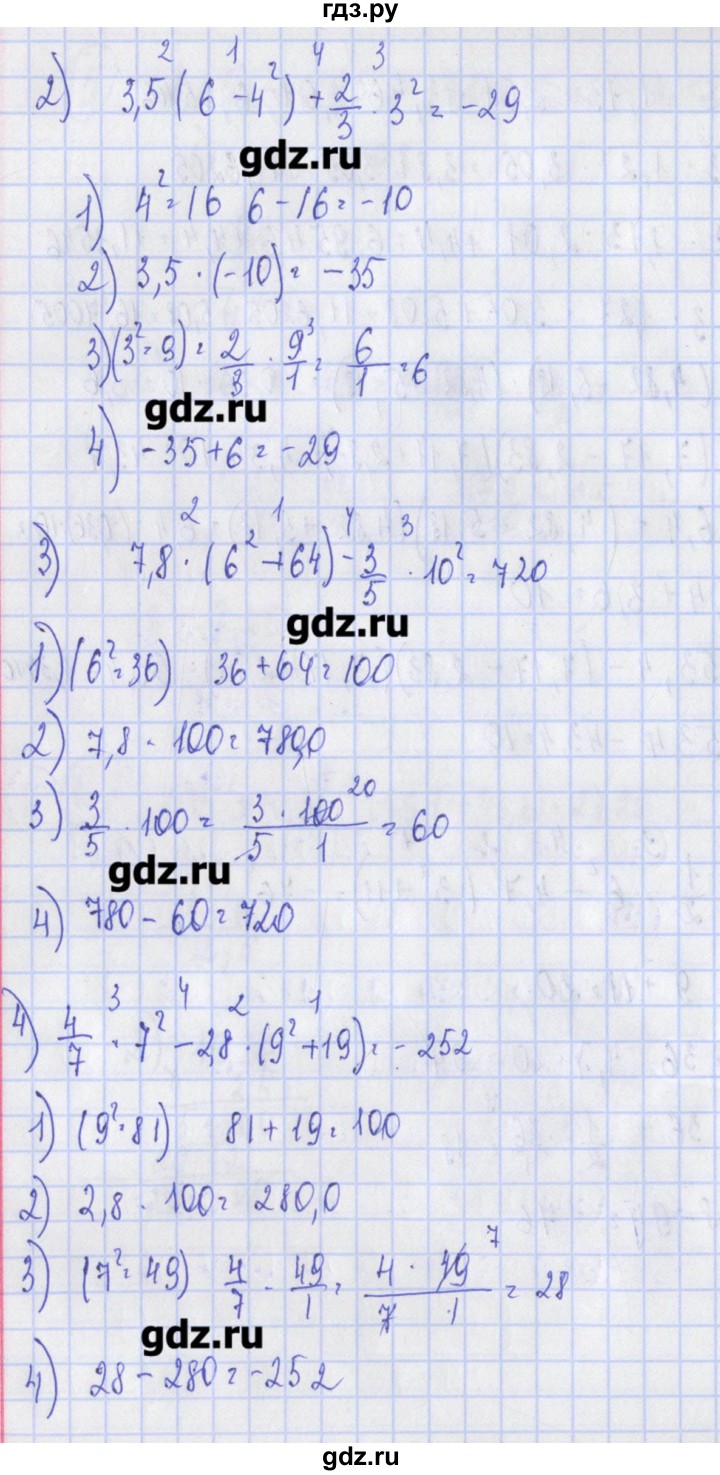 гдз.ру
2 1 4 3
2) 3,5 ( 6 - 4² ) + 2/3 · 3² = -29
gdz.ru
1) 4² = 16 6 - 16 = -10
2) 3,5 · (-10) = -35
3) (3² = 9) = 2/3 · 9/1 ³ = 6/1 = 6
gdz.ru
4) -35 + 6 = -29
2 1 4 3
3) 7,8 · (6² + 64) - 3/5 · 10² = 720
gdz.ru
1) (6² = 36) 36 + 64 = 100
2) 7,8 · 100 = 780,0
3) 3/5 · 100 = 3 · 100 ²⁰ / 5 · 1 = 60
gdz.ru
4) 780 - 60 = 720
3 4 2 1
4) 4/7 · 7² - 2,8 · (9² + 19) = -252
1) (9² = 81) 81 + 19 = 100
2) 2,8 · 100 = 280,0
3) (7² = 49) 4/7 · 49/1 = 4 · 49 ⁷ / 7 · 1 = 28
gdz.ru
4) 28 - 280 = -252
gdz.ru